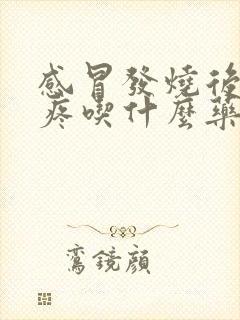 感冒發燒後
疼喫什麼藥
鸞鏡顔